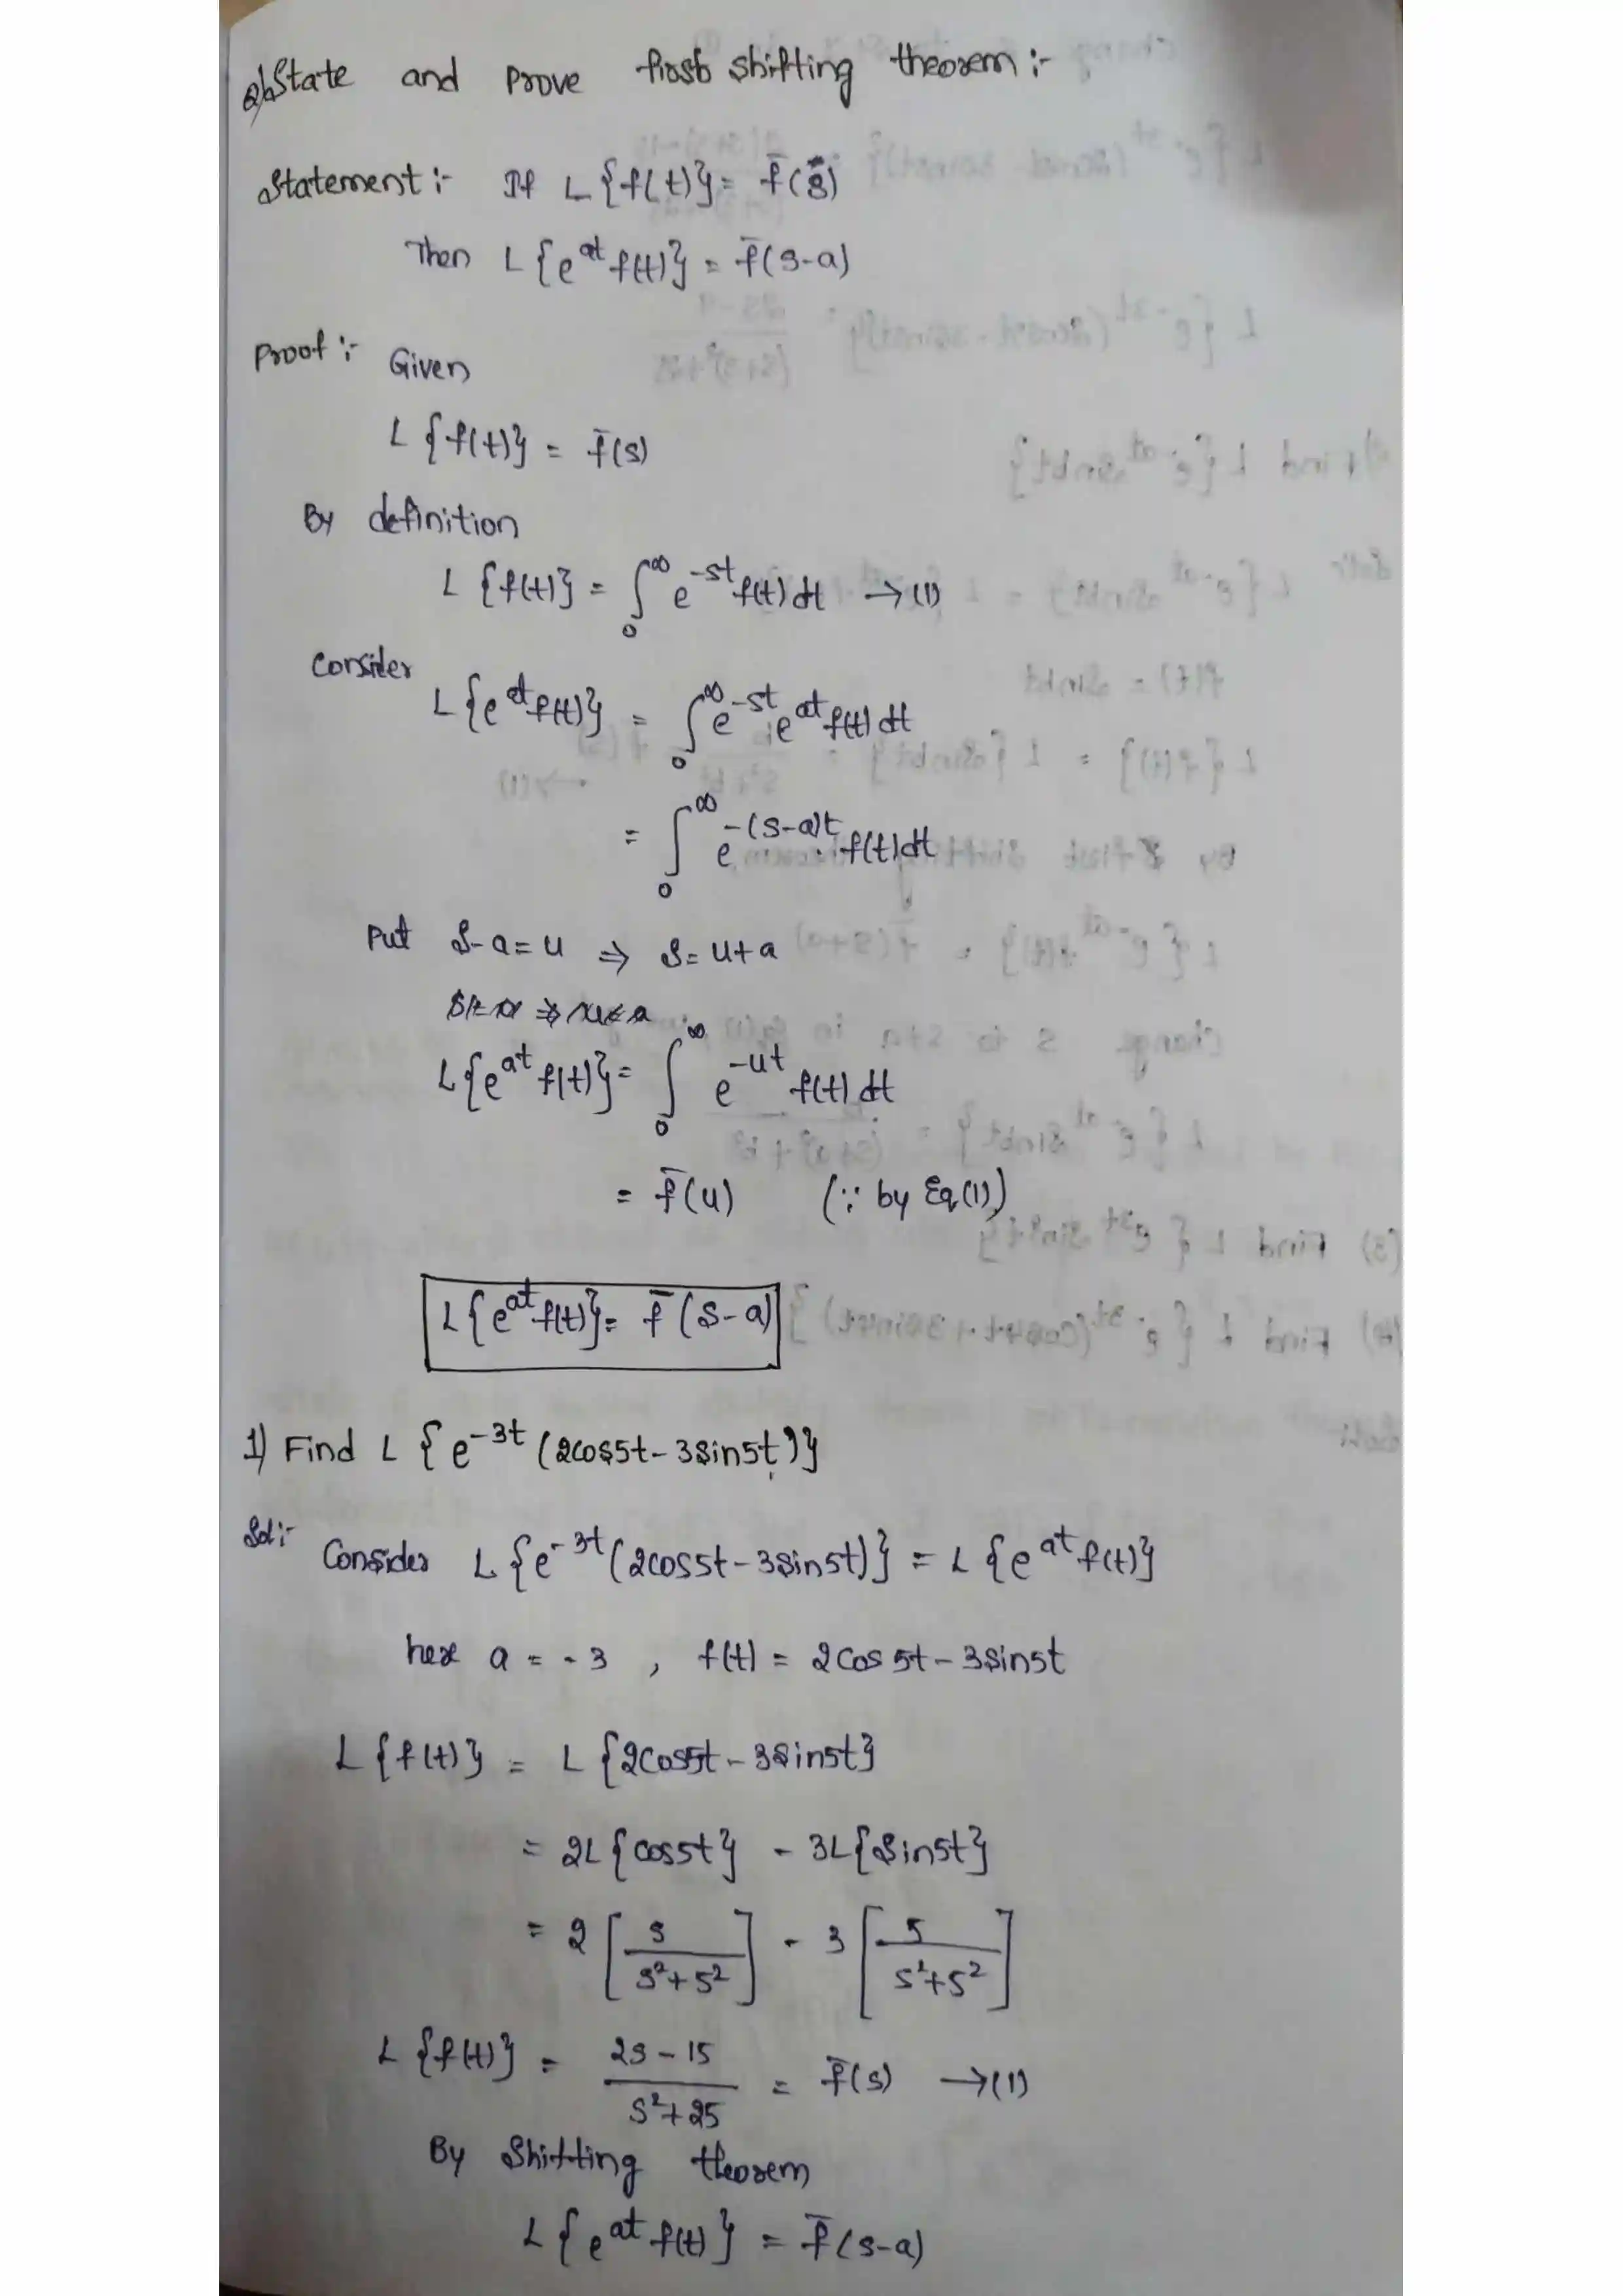 2) State and Prove first shifting theorem :-
Statement :- If L{f(t)} = f̄(s)
Then L{e^at f(t)} = f̄(s-a)
Proof :- Given
L{f(t)} = f̄(s)
By definition
L{f(t)} = ∫₀^∞ e^-st f(t) dt → (1)
Consider
L{e^at f(t)} = ∫₀^∞ e^-st e^at f(t) dt
= ∫₀^∞ e^-(s-a)t . f(t) dt
Put s-a = u ⇒ s = u+a
L{e^at f(t)} = ∫₀^∞ e^-ut f(t) dt
= f̄(u) (∵ by Eq (1))
L{e^at f(t)} = f̄(s-a)
1) Find L{e^-3t (2cos5t - 3sin5t)}
Sol :- Consider L{e^-3t (2cos5t - 3sin5t)} = L{e^at f(t)}
here a = -3 , f(t) = 2cos5t - 3sin5t
L{f(t)} = L{2cos5t - 3sin5t}
= 2L{cos5t} - 3L{sin5t}
= 2[s/(s²+5²)] - 3[5/(s²+5²)]
L{f(t)} = (2s-15)/(s²+25) = f̄(s) → (1)
By Shifting theorem
L{e^at f(t)} = f̄(s-a)